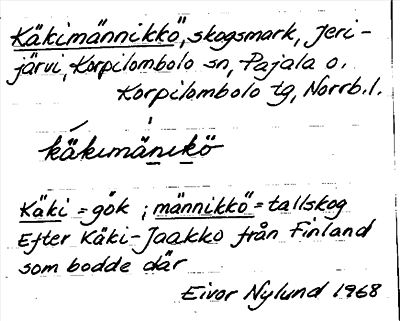 Käkimännikkö, skogsmark, Jeri-
järvi, Korpilombolo sn, Pajala o.
Korpilombolo tg, Norrb.l.
käkimänikö
Käki = gök ; männikkö = tallskog
Efter Käki-Jaakko från Finland
som bodde där
Eivor Nylund 1968